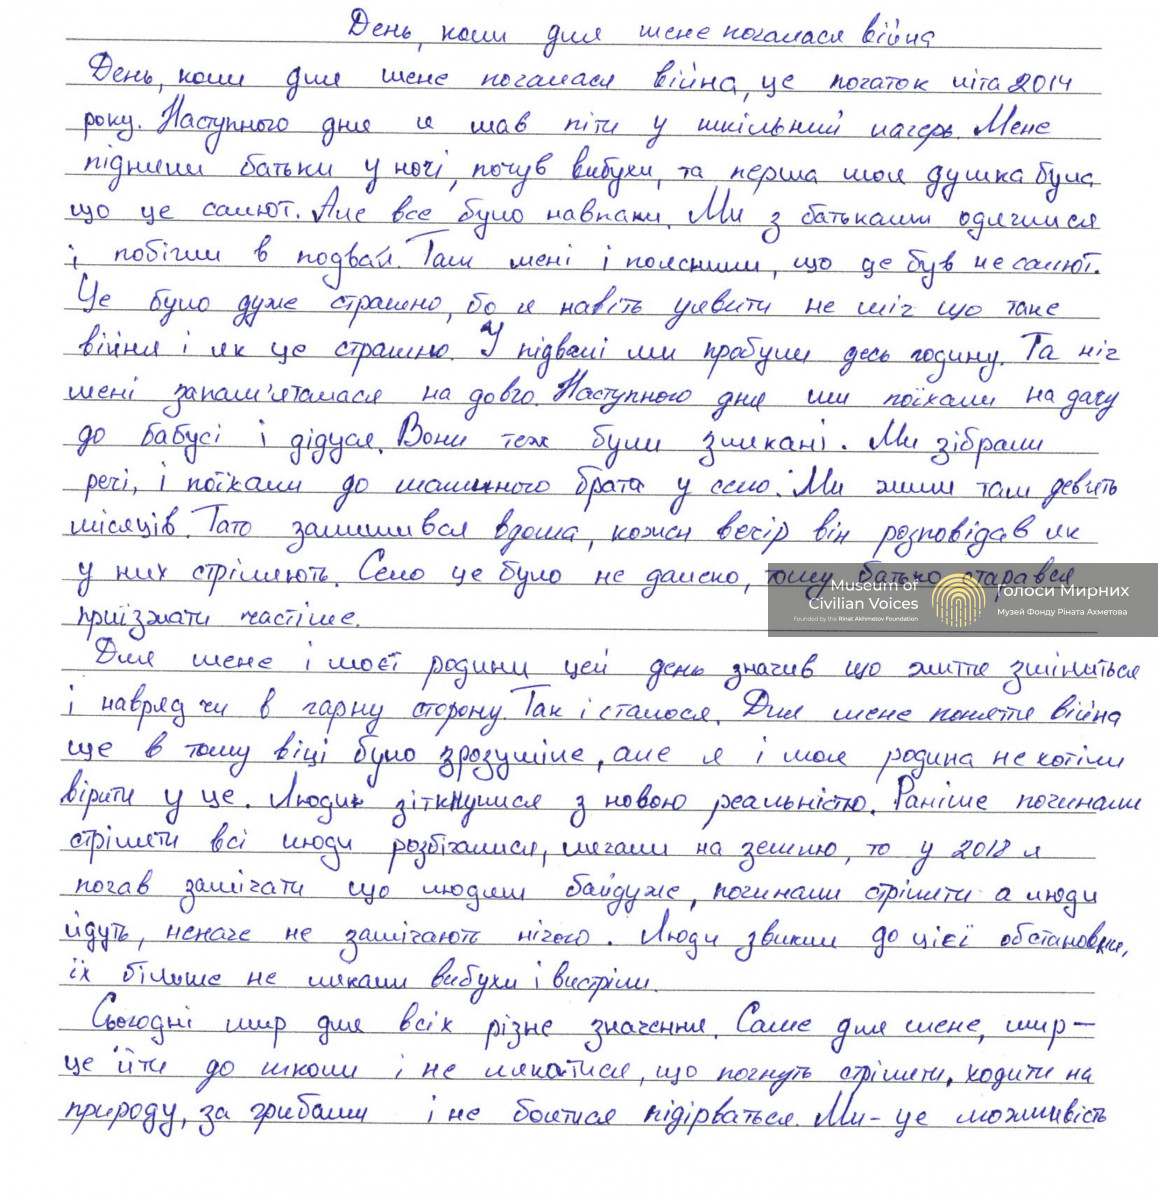 День, коли для мене почалася війна
День, коли для мене почалася війна, це початок літа 2014
року. Наступного дня я мав піти у шкільний лагерь. Мене
підняли батьки у ночі, почув вибухи, та перша моя душка була
що це салют. Але все було навпаки. Ми з батьками одяглися
і побігли в подвал. Там мені і пояснили, що це був не салют.
Це було дуже страшно, бо я навіть уявити не міг що таке
війня і як це страшно. У підвалі ми пробули десь годину. Та ніч
мені запам'яталася на довго. Наступного дня ми поїхали на дачу
до бабусі і дідуся. Вони теж були злякані. Ми зібрали
речі, і поїхали до маминого брата у село. Ми жили там девять
місяців. Тато залишився вдома, кожен вечір він розповідав як
у них стріляють. Село це було не далеко, тому батько старався
приїзжати частіше.
Museum of
Civilian Voices
Founded by the Rinat Akhmetov Foundation
Голоси Мирних
Музей Фонду Ріната Ахметова
Для мене і моєї родини цей день значив що життя зміниться
і навряд чи в гарну сторону. Так і сталося. Для мене поняття війна
ще в тому віці було зрозуміле, але я і моя родина не хотіли
вірити у це. Люди зіткнулися з новою реальністю. Раніше починали
стріляти всі люди розбігалися, лягали на землю, то у 2018 я
почав замічати що людям байдуже, починали стріляти а люди
йдуть, неначе не замічають нічого. Люди звикли до цієї обстановки,
їх більше не лякали вибухи і вистріли.
Сьогодні мир для всіх різне значення. Саме для мене, мир –
це йти до школи і не лякатися, що почнуть стріляти, ходити на
природу, за грибами і не боятися підірваться. Ми - це можливість